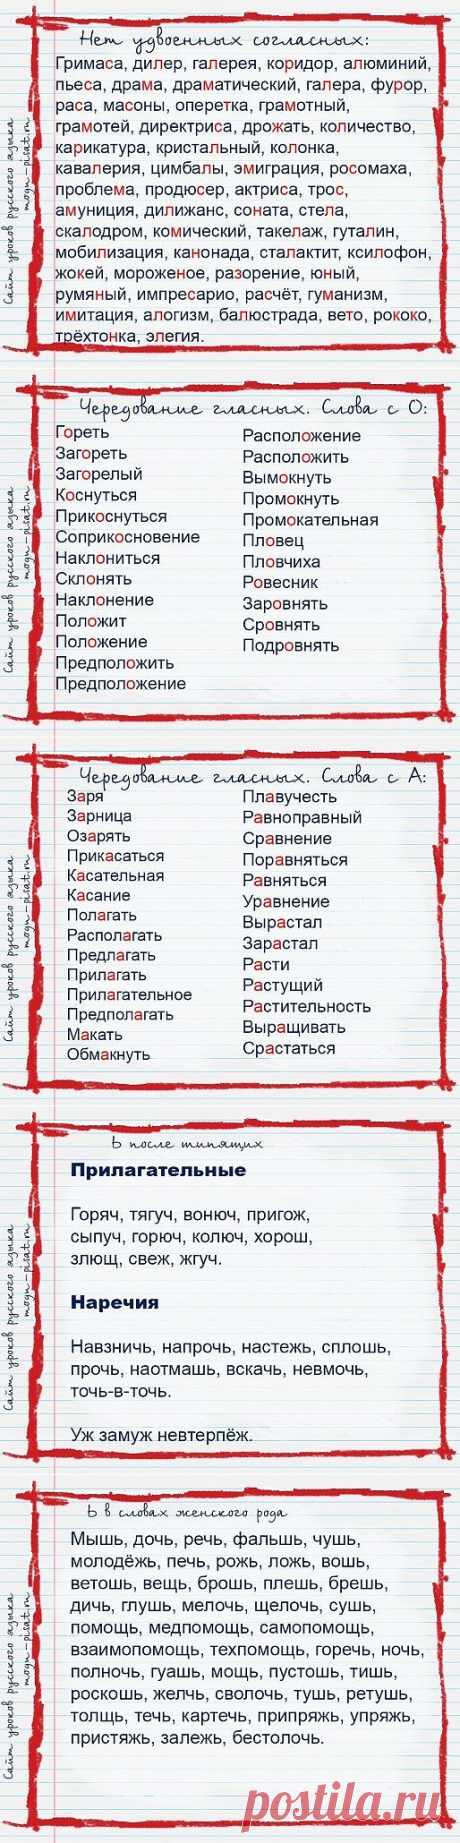 Нет удвоенных согласных:
Гримаса, дилер, галерея, коридор, алюминий,
пьеса, драма, драматический, галера, фурор,
раса, масоны, оперетка, грамотный,
грамотей, директриса, дрожать, количество,
карикатура, кристальный, колонка,
кавалерия, цимбалы, эмиграция, росомаха,
проблема, продюсер, актриса, трос,
амуниция, дилижанс, соната, стела,
скалодром, комический, такелаж, гуталин,
мобилизация, канонада, сталактит, ксилофон,
жокей, мороженое, разорение, юный,
румяный, импресарио, расчёт, гуманизм,
имитация, алогизм, балюстрада, вето, рококо,
трёхтонка, элегия.
Сайт уроков русского языка
mogu-pisat.ru
Чередование гласных. Слова с О:
Гореть
Загореть
Загорелый
Коснуться
Прикоснуться
Соприкосновение
Наклониться
Склонять
Наклонение
Положит
Положение
Предположить
Предположение
Расположение
Расположить
Вымокнуть
Промокнуть
Промокательная
Пловец
Пловчиха
Ровесник
Заровнять
Сровнять
Подровнять
Сайт уроков русского языка
mogu-pisat.ru
Чередование гласных. Слова с А:
Заря
Зарница
Озарять
Прикасаться
Касательная
Касание
Полагать
Располагать
Предлагать
Прилагать
Прилагательное
Предполагать
Макать
Обмакнуть
Плавучесть
Равноправный
Сравнение
Поравняться
Равняться
Уравнение
Вырастал
Зарастал
Расти
Растущий
Растительность
Выращивать
Срастаться
Сайт уроков русского языка
mogu-pisat.ru
Ь после шипящих
Прилагательные
Горяч, тягуч, вонюч, пригож,
сыпуч, горюч, колюч, хорош,
злющ, свеж, жгуч.
Наречия
Навзничь, напрочь, настежь, сплошь,
прочь, наотмашь, вскачь, невмочь,
точь-в-точь.
Уж замуж невтерпёж.
Сайт уроков русского языка
mogu-pisat.ru
Ь в словах женского рода
Мышь, дочь, речь, фальшь, чушь,
молодёжь, печь, рожь, ложь, вошь,
ветошь, вещь, брошь, плешь, брешь,
дичь, глушь, мелочь, щелочь, сушь,
помощь, медпомощь, самопомощь,
взаимопомощь, техпомощь, горечь, ночь,
полночь, гуашь, мощь, пустошь, тишь,
роскошь, желчь, сволочь, тушь, ретушь,
толщь, течь, картечь, припряжь, упряжь,
пристяжь, залежь, бестолочь.
Сайт уроков русского языка
mogu-pisat.ru
postila.ru